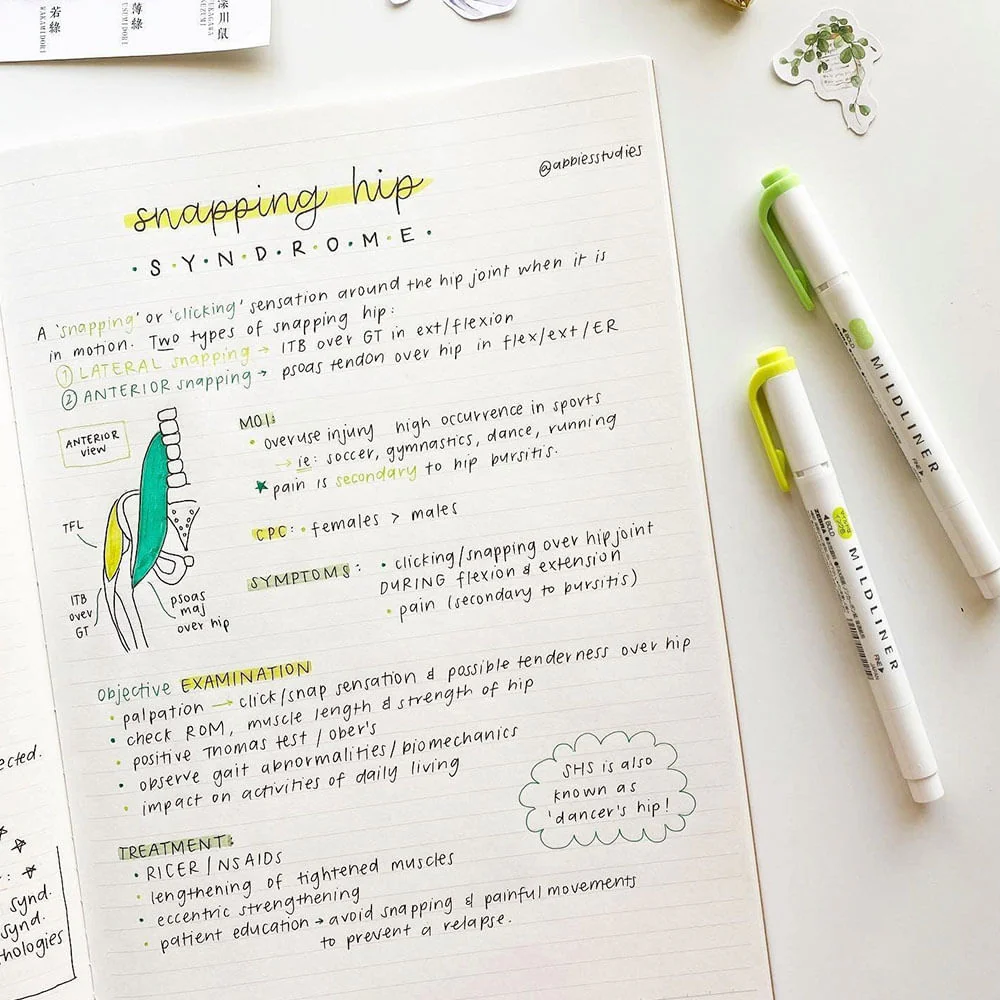 若綠
WAKAMIDORI
薄綠
USUMIDORI
深川鼠
@abbiesstudies
snapping hip
S·Y·N·D·R·O·M·E·
A 'snapping' or 'clicking' sensation around the hip joint when it is
in motion. Two types of snapping hip:
① LATERAL snapping → ITB over GT in ext/flexion
② ANTERIOR snapping → psoas tendon over hip in flex/ext/ER
ANTERIOR
view
TFL
ITB
over
GT
psoas
maj
over hip
MOI:
• overuse injury high occurrence in sports
→ ie: soccer, gymnastics, dance, running
★ pain is secondary to hip bursitis.
CPC: • females > males
SYMPTOMS: • clicking/snapping over hip joint
DURING flexion & extension
• pain (secondary to bursitis)
Objective EXAMINATION
• palpation → click/snap sensation & possible tenderness over hip
• check ROM, muscle length & strength of hip
• positive Thomas test / ober's
• observe gait abnormalities/biomechanics
• impact on activities of daily living
SHS is also
known as
'dancer's hip!
TREATMENT:
• RICER/NSAIDS
• lengthening of tightened muscles
• eccentric strengthening
• patient education → avoid snapping & painful movements
to prevent a relapse.
ected.
synd.
synd.
hologies
BOLD
MILDLINER
FINE
BOLD
MILDLINER
FINE
JAPAN